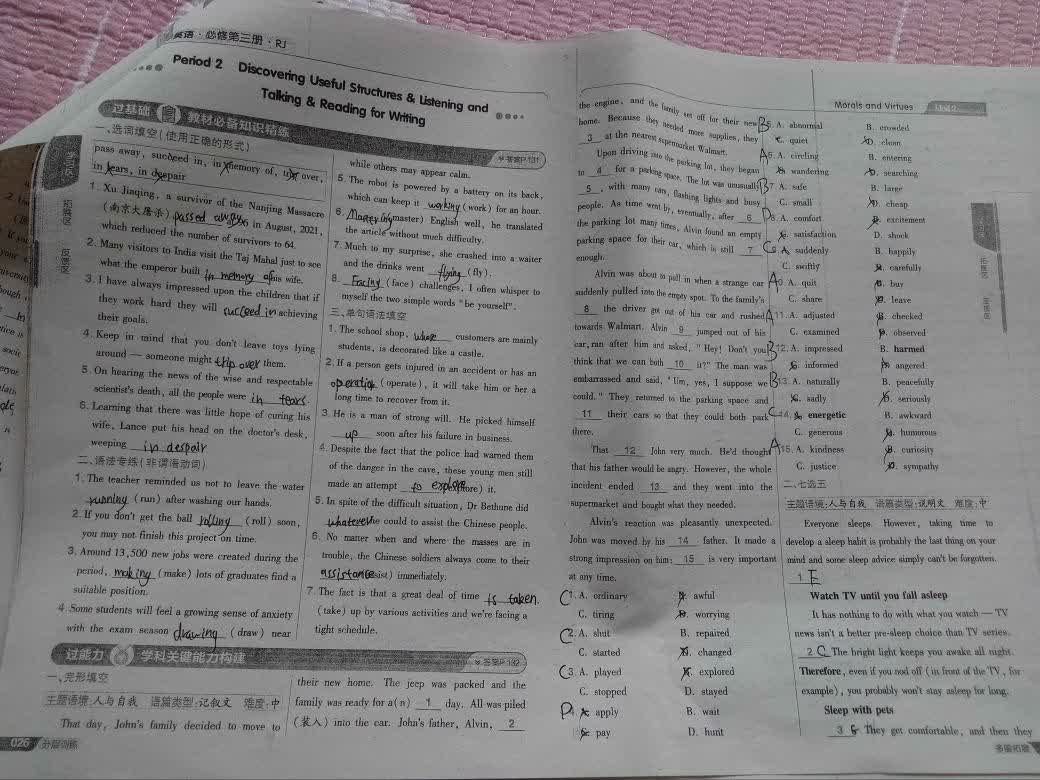 英语·必修第三册·RJ
Period 2 Discovering Useful Structures & Listening and
Talking & Reading for Writing
过基础 教材必备知识精练
答案P131
一、选词填空(使用正确的形式)
pass away, succeed in, in memory of, trip over,
in tears, in despair
1. Xu Jiaqing, a survivor of the Nanjing Massacre
(南京大屠杀) passed away in August, 2021,
which reduced the number of survivors to 64.
2. Many visitors to India visit the Taj Mahal just to see
what the emperor built in memory of his wife.
3. I have always impressed upon the children that if
they work hard they will succeed in achieving
their goals.
4. Keep in mind that you don't leave toys lying
around — someone might trip over them.
5. On hearing the news of the wise and respectable
scientist's death, all the people were in tears
6. Learning that there was little hope of curing his
wife, Lance put his head on the doctor's desk,
weeping in despair
二、语法专练(非谓语动词)
1. The teacher reminded us not to leave the water
running (run) after washing our hands.
2. If you don't get the ball rolling (roll) soon,
you may not finish this project on time.
3. Around 13,500 new jobs were created during the
period, making (make) lots of graduates find a
suitable position.
4. Some students will feel a growing sense of anxiety
with the exam season drawing (draw) near
while others may appear calm.
5. The robot is powered by a battery on its back,
which can keep it working (work) for an hour.
6. (master) English well, he translated
the article without much difficulty.
7. Much to my surprise, she crashed into a waiter
and the drinks went flying (fly).
8. Facing (face) challenges, I often whisper to
myself the two simple words "be yourself".
三、单句语法填空
1. The school shop, whose customers are mainly
students, is decorated like a castle.
2. If a person gets injured in an accident or has an
operation (operate), it will take him or her a
long time to recover from it.
3. He is a man of strong will. He picked himself
up soon after his failure in business.
4. Despite the fact that the police had warned them
of the danger in the cave, these young men still
made an attempt to explore it.
5. In spite of the difficult situation, Dr Bethune did
whatever he could to assist the Chinese people.
6. No matter when and where the masses are in
trouble, the Chinese soldiers always come to their
assistance immediately.
7. The fact is that a great deal of time is taken
(take) up by various activities and we're facing a
tight schedule.
过能力 学科关键能力构建
答案P132
一、完形填空
主题语境:人与自我 语篇类型:记叙文 难度:中
That day, John's family decided to move to
their new home. The jeep was packed and the
family was ready for a(n) 1 day. All was piled
(装入) into the car. John's father, Alvin, 2
026 分层训练
Morals and Virtues
the engine, and the family set off for their new
home. Because they needed more supplies, they
3 at the nearest supermarket Walmart.
Upon driving into the parking lot, they began
to 4 for a parking space. The lot was unusually
5, with many cars, flashing lights and busy
people. As time went by, eventually, after 6
the parking lot many times, Alvin found an empty
parking space for their car, which is still 7
enough.
Alvin was about to pull in when a strange car
suddenly pulled into the empty spot. To the family's
8 the driver got out of his car and rushed
towards Walmart. Alvin 9 jumped out of his
car, ran after him and asked, "Hey! Don't you
think that we can both 10 it?" The man was
embarrassed and said, "Um, yes, I suppose we
could." They returned to the parking space and
11 their cars so that they could both park
there.
That 12 John very much. He'd thought
that his father would be angry. However, the whole
incident ended 13 and they went into the
supermarket and bought what they needed.
Alvin's reaction was pleasantly unexpected.
John was moved by his 14 father. It made a
strong impression on him: 15 is very important
at any time.
C 1. A. ordinary B. awful
C. tiring D. worrying
C 2. A. shut B. repaired
C. started D. changed
C 3. A. played B. explored
C. stopped D. stayed
D 4. A. apply B. wait
C. pay D. hunt
B 5. A. abnormal B. crowded
C. quiet D. clean
A 6. A. circling B. entering
C. wandering D. searching
B 7. A. safe B. large
C. small D. cheap
D 8. A. comfort B. excitement
C. satisfaction D. shock
C 9. A. suddenly B. happily
C. swiftly D. carefully
A. quit B. buy
C. share D. leave
A 11. A. adjusted B. checked
C. examined D. observed
B 12. A. impressed B. harmed
C. informed D. angered
B 13. A. naturally B. peacefully
C. sadly D. seriously
C 14. A. energetic B. awkward
C. generous D. humorous
A 15. A. kindness B. curiosity
C. justice D. sympathy
二、七选五
主题语境:人与自我 语篇类型:说明文 难度:中
Everyone sleeps. However, taking time to
develop a sleep habit is probably the last thing on your
mind and some sleep advice simply can't be forgotten.
1 E
Watch TV until you fall asleep
It has nothing to do with what you watch — TV
news isn't a better pre-sleep choice than TV series.
2 C The bright light keeps you awake all night.
Therefore, even if you nod off (in front of the TV, for
example), you probably won't stay asleep for long.
Sleep with pets
3 G They get comfortable, and then they